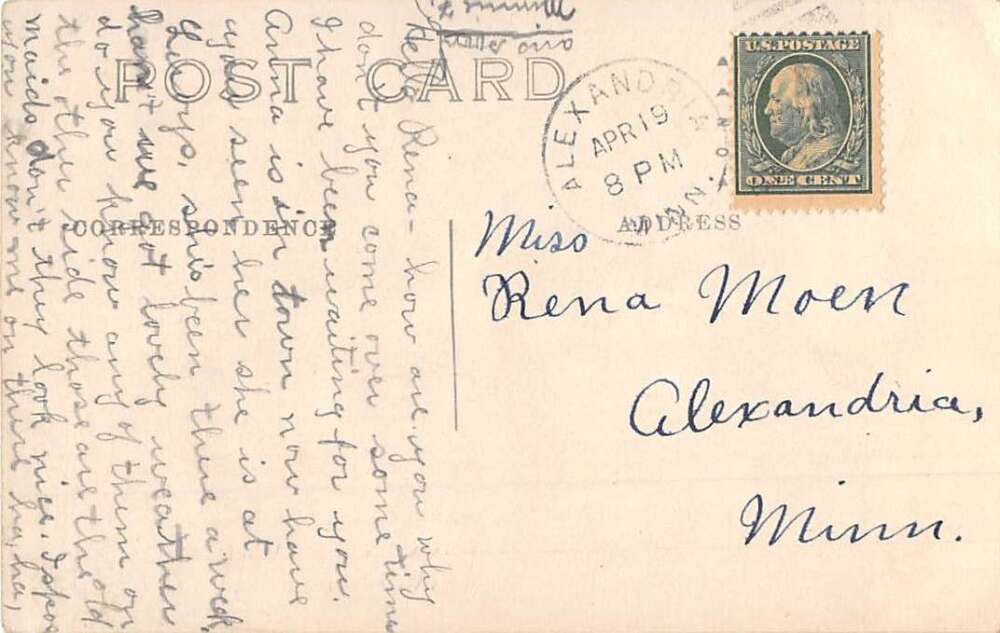 POST CARD
CORRESPONDENCE
ADDRESS
U.S. POSTAGE
ONE CENT
ALEXANDRIA
MINN.
APR 19
8 PM
Miss
Rena Moen
Alexandria,
Minn.
Hello Rena - how are you why
don't you come over some time
I have been waiting for you.
Anna is in town now have
you seen her she is at
she's been there a week,
haven't we got lovely weather
do you know any of them on
the other side those are the old
maids don't they look nice. I
you know one on there ha, ha,
Minnie